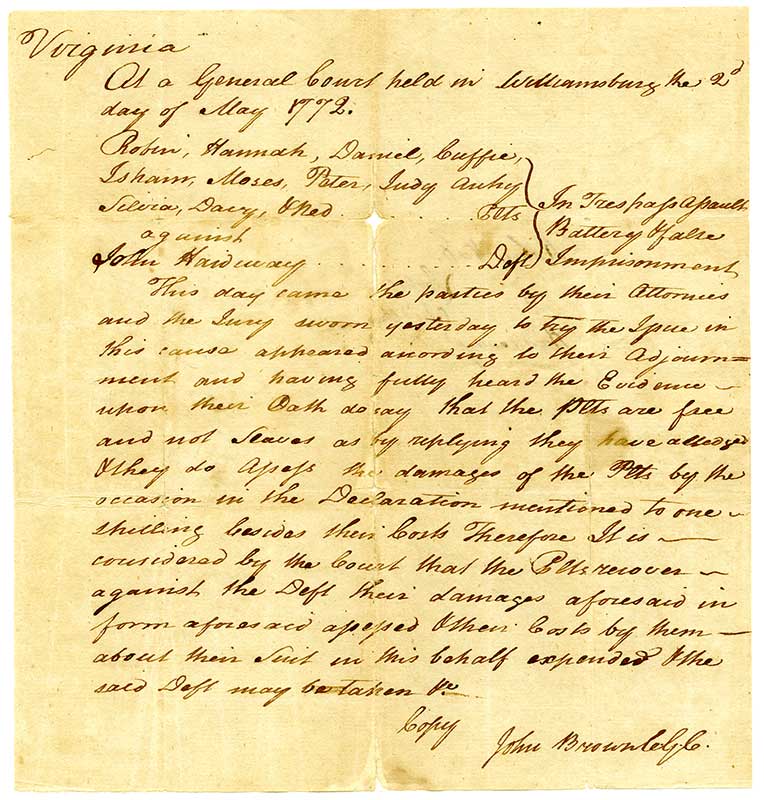 Virginia
At a General Court held in Williamsburg the 2d
day of May 1772.
Robin, Hannah, Daniel, Cuffie,
Isham, Moses, Peter, Judy Autry
Silvia, Davy, & Ned . . . . . . . Plts
In Trespass Assault
Battery & false
Imprisonment
against
John Hardaway . . . . . . . . . . Deft
This day came the parties by their Attornies
and the Jury sworn yesterday to try the Issue in
this cause appeared according to their Adjourn=
ment and having fully heard the Evidence
upon their Oath do say that the Plts are free
and not Slaves as by replying they have alledged
& they do Assess the damages of the Plts by the
occasion in the Declaration mentioned to one
shilling besides their Costs Therefore It is
considered by the Court that the Plts recover
against the Deft their damages aforesaid in
form aforesaid assessed & their Costs by them
about their Suit in this behalf expended & the
said Deft may be taken &c
Copy
John Brown ClGC.